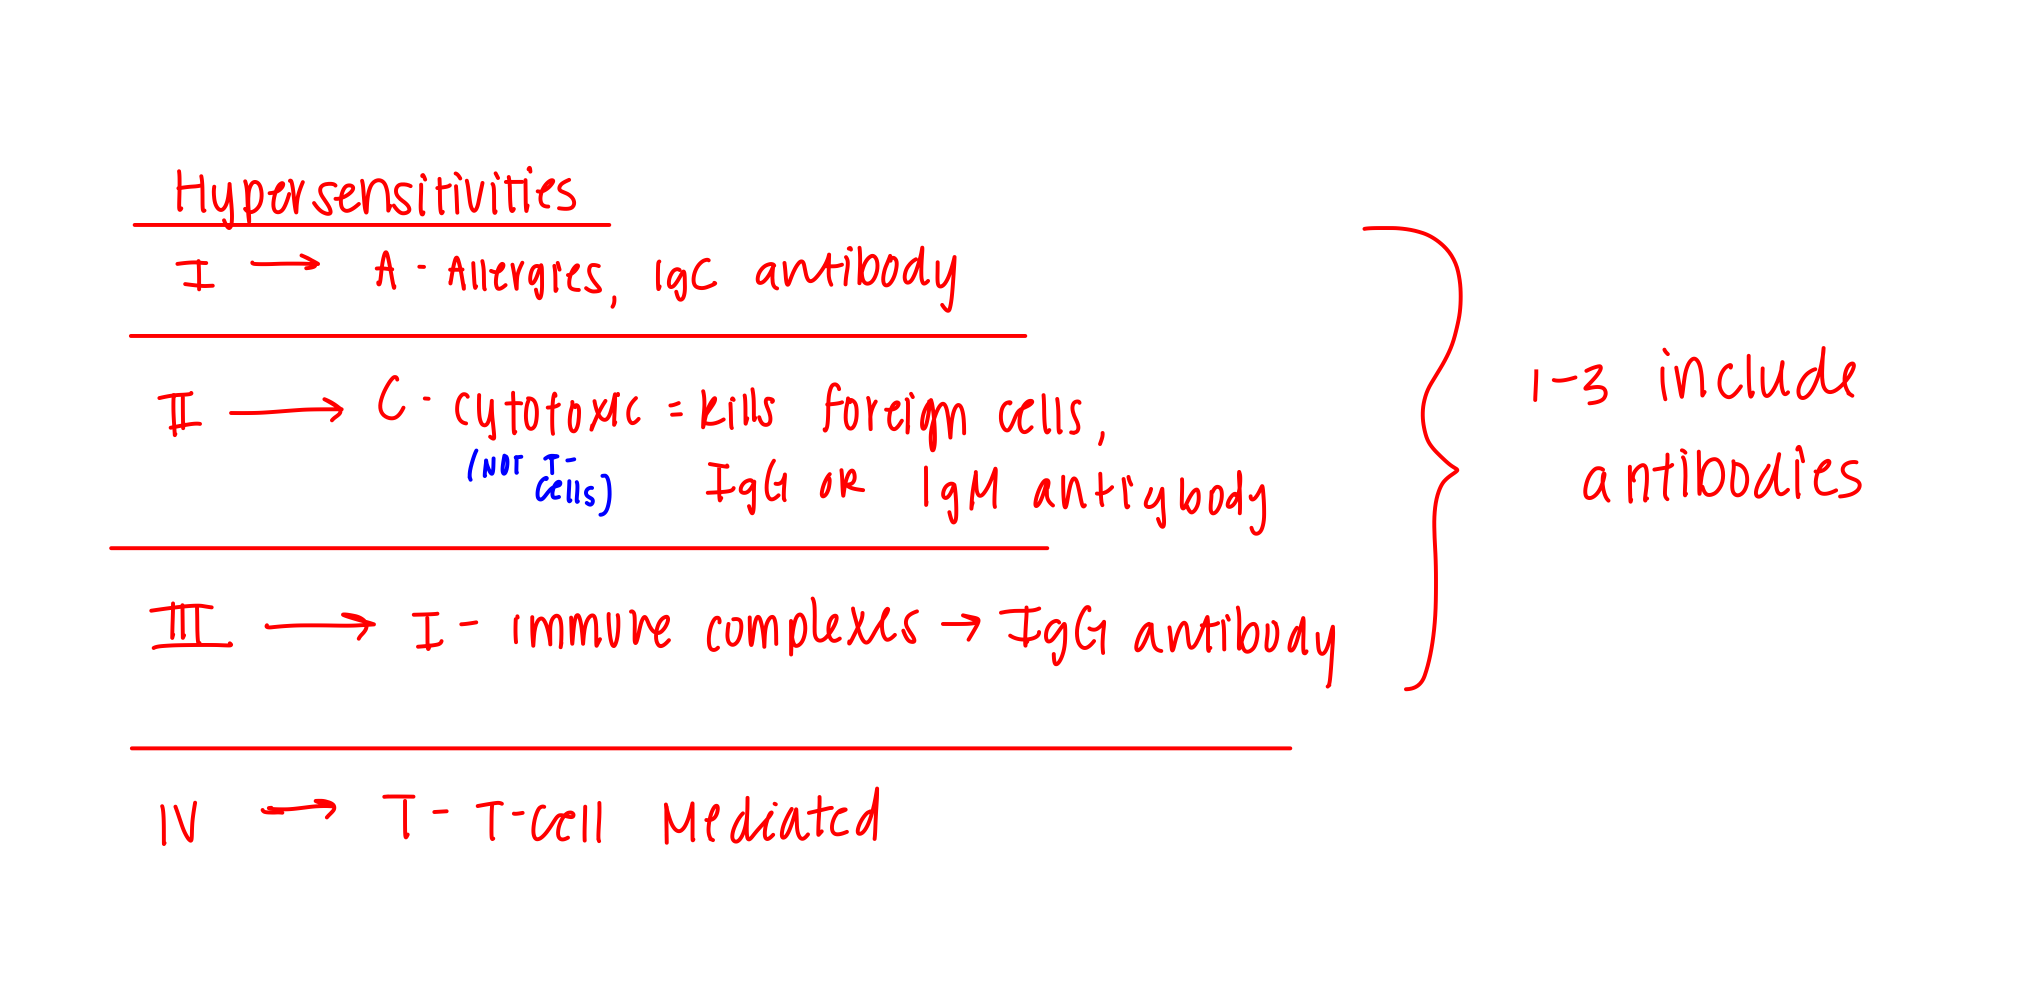 Hypersensitivities
I → A - Allergies, IgC antibody
II → C - cytotoxic = kills foreign cells,
(NOT T-
cells)
IgG OR IgM antiybody
III → I - immune complexes → IgG antibody
IV → T - T-cell Mediated
1-3 include
antibodies